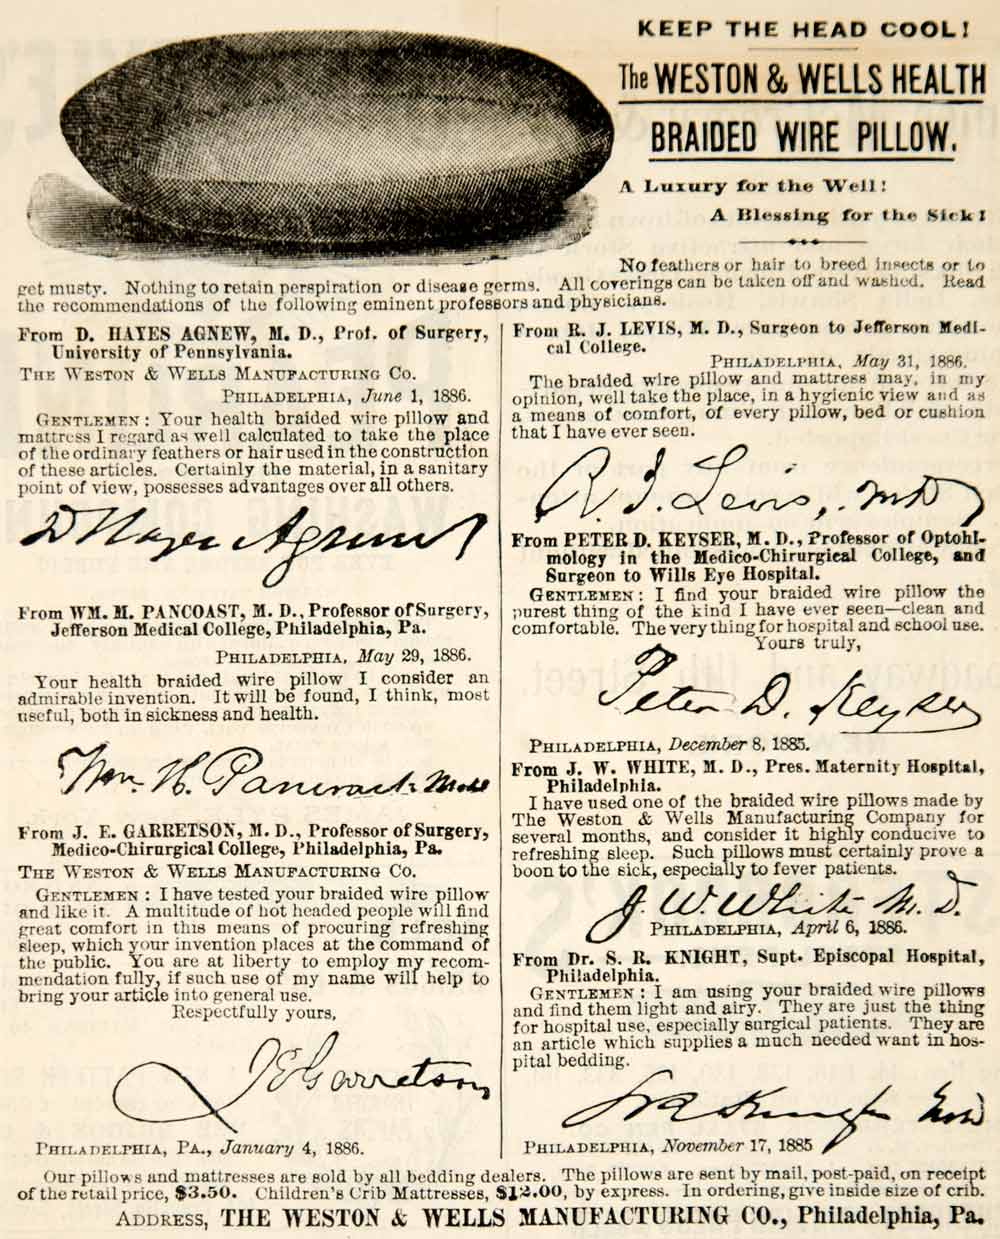 KEEP THE HEAD COOL!
The WESTON & WELLS HEALTH
BRAIDED WIRE PILLOW.
A Luxury for the Well!
A Blessing for the Sick!
No feathers or hair to breed insects or to
get musty. Nothing to retain perspiration or disease germs. All coverings can be taken off and washed. Read
the recommendations of the following eminent professors and physicians.
From D. HAYES AGNEW, M. D., Prof. of Surgery,
University of Pennsylvania.
THE WESTON & WELLS MANUFACTURING CO.
PHILADELPHIA, June 1, 1886.
GENTLEMEN: Your health braided wire pillow and
mattress I regard as well calculated to take the place
of the ordinary feathers or hair used in the construction
of these articles. Certainly the material, in a sanitary
point of view, possesses advantages over all others.
D Hayes Agnew
From WM. M. PANCOAST, M. D., Professor of Surgery,
Jefferson Medical College, Philadelphia, Pa.
PHILADELPHIA, May 29, 1886.
Your health braided wire pillow I consider an
admirable invention. It will be found, I think, most
useful, both in sickness and health.
Wm. H. Pancoast M.D.
From J. E. GARRETSON, M. D., Professor of Surgery,
Medico-Chirurgical College, Philadelphia, Pa.
THE WESTON & WELLS MANUFACTURING CO.
GENTLEMEN: I have tested your braided wire pillow
and like it. A multitude of hot headed people will find
great comfort in this means of procuring refreshing
sleep, which your invention places at the command of
the public. You are at liberty to employ my recom-
mendation fully, if such use of my name will help to
bring your article into general use.
Respectfully yours,
J E Garretson
PHILADELPHIA, PA., January 4, 1886.
From R. J. LEVIS, M. D., Surgeon to Jefferson Medi-
cal College.
PHILADELPHIA, May 31, 1886.
The braided wire pillow and mattress may, in my
opinion, well take the place, in a hygienic view and as
a means of comfort, of every pillow, bed or cushion
that I have ever seen.
R. J. Levis, M D
From PETER D. KEYSER, M. D., Professor of Optohl-
mology in the Medico-Chirurgical College, and
Surgeon to Wills Eye Hospital.
GENTLEMEN: I find your braided wire pillow the
purest thing of the kind I have ever seen—clean and
comfortable. The very thing for hospital and school use.
Yours truly,
Peter D. Keyser
PHILADELPHIA, December 8, 1885.
From J. W. WHITE, M. D., Pres. Maternity Hospital,
Philadelphia.
I have used one of the braided wire pillows made by
The Weston & Wells Manufacturing Company for
several months, and consider it highly conducive to
refreshing sleep. Such pillows must certainly prove a
boon to the sick, especially to fever patients.
J. W. White M. D.
PHILADELPHIA, April 6, 1886.
From Dr. S. R. KNIGHT, Supt. Episcopal Hospital,
Philadelphia.
GENTLEMEN: I am using your braided wire pillows
and find them light and airy. They are just the thing
for hospital use, especially surgical patients. They are
an article which supplies a much needed want in hos-
pital bedding.
S R Knight M.D.
PHILADELPHIA, November 17, 1885
Our pillows and mattresses are sold by all bedding dealers. The pillows are sent by mail, post-paid, on receipt
of the retail price, $3.50. Children's Crib Mattresses, $12.00, by express. In ordering, give inside size of crib.
ADDRESS, THE WESTON & WELLS MANUFACTURING CO., Philadelphia, Pa.